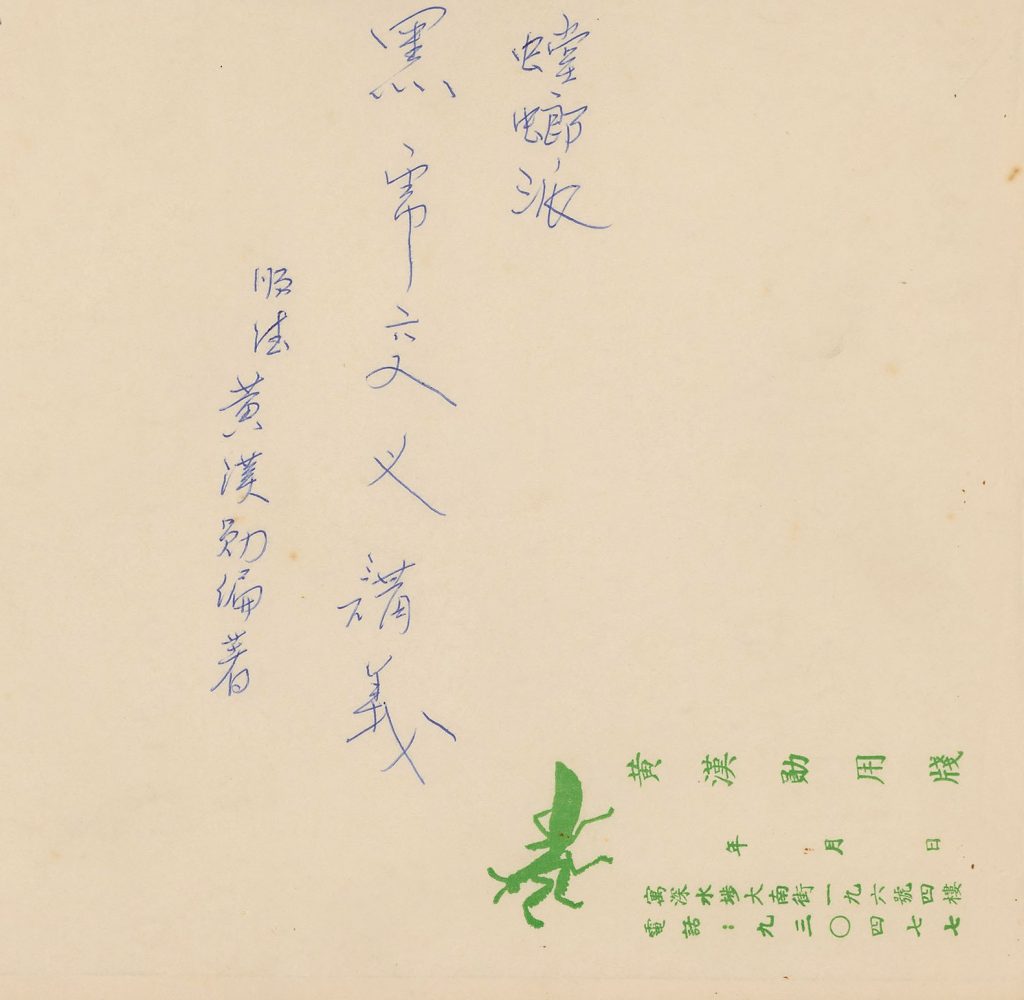 螳螂派
黑虎交叉講義
順德黃漢勛編著
黃漢勛用牋
年 月 日
寓深水埗大南街一九六號四樓
電話：九三〇四七七